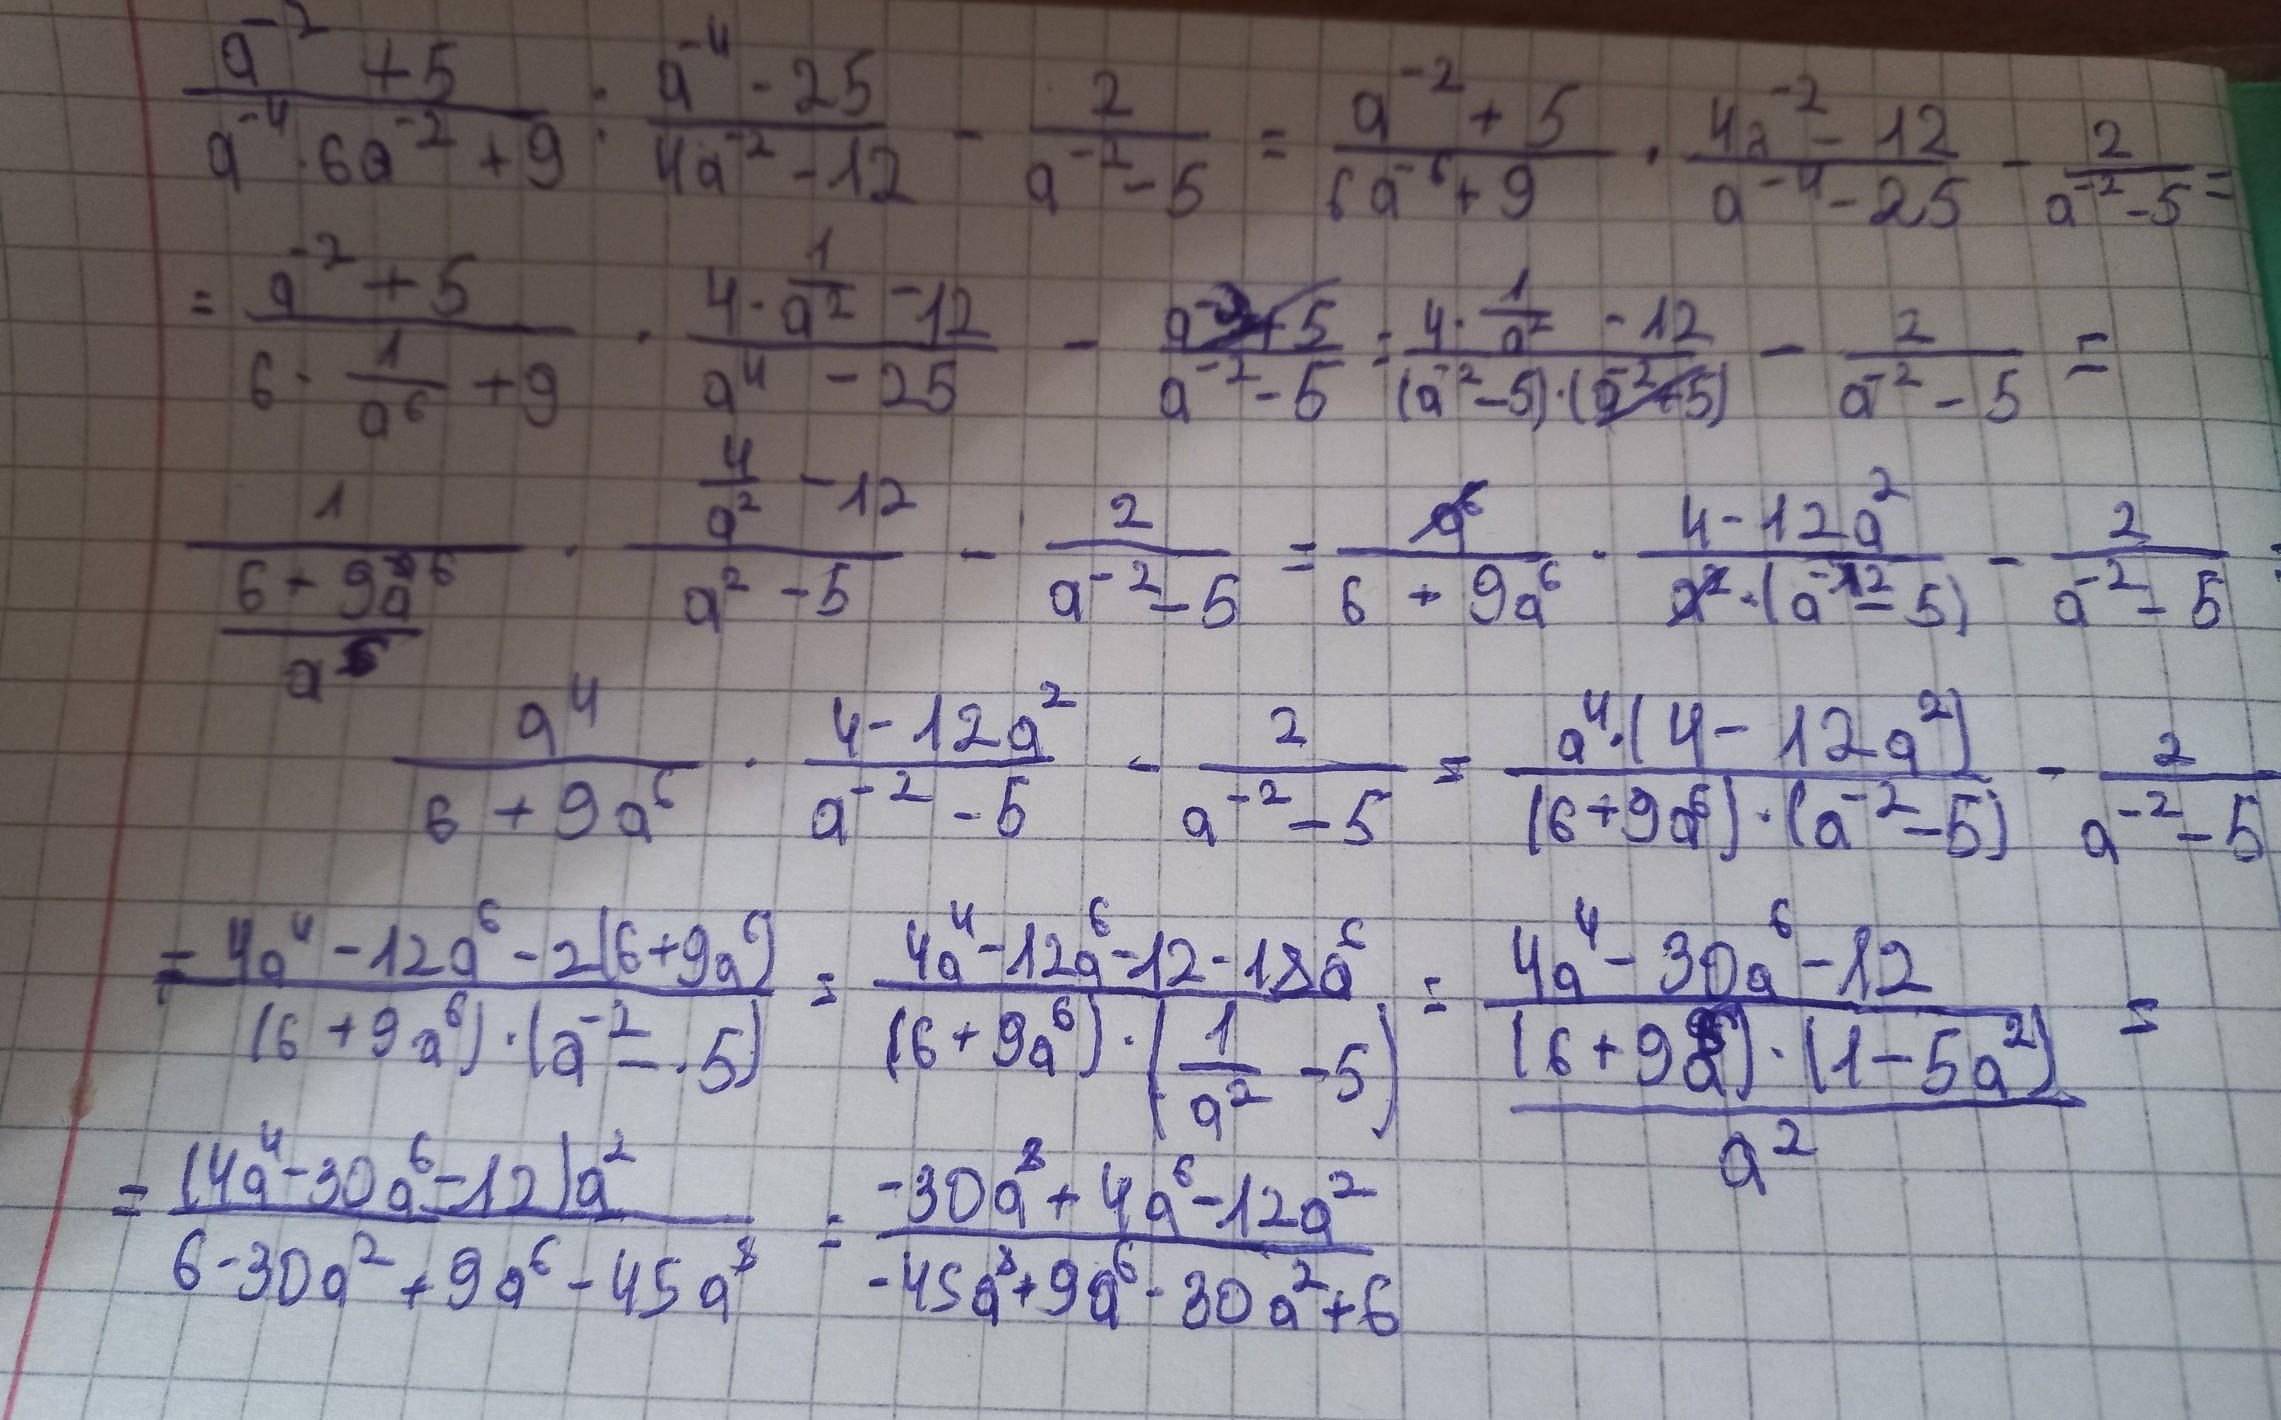 \frac{a^{-2}+5}{a^{-4} \cdot 6a^{-2}+9} : \frac{a^{-4}-25}{4a^{-2}-12} - \frac{2}{a^{-2}-5} = \frac{a^{-2}+5}{6a^{-6}+9} \cdot \frac{4a^{-2}-12}{a^{-4}-25} - \frac{2}{a^{-2}-5} =
= \frac{a^{-2}+5}{6 \cdot \frac{1}{a^6}+9} \cdot \frac{4 \cdot \frac{1}{a^2}-12}{a^4-25} - \frac{a^{-2}+5}{a^{-2}-5} = \frac{4 \cdot \frac{1}{a^2}-12}{(a^{-2}-5) \cdot (a^{-2}+5)} - \frac{2}{a^{-2}-5} =
\frac{1}{\frac{6+9a^6}{a^6}} \cdot \frac{\frac{4}{a^2}-12}{a^2-5} - \frac{2}{a^{-2}-5} = \frac{a^6}{6+9a^6} \cdot \frac{4-12a^2}{a^2 \cdot (a^{-2}-5)} - \frac{2}{a^{-2}-5} =
\frac{a^4}{6+9a^6} \cdot \frac{4-12a^2}{a^{-2}-5} - \frac{2}{a^{-2}-5} = \frac{a^4 \cdot (4-12a^2)}{(6+9a^6) \cdot (a^{-2}-5)} - \frac{2}{a^{-2}-5}
= \frac{4a^4-12a^6-2(6+9a^6)}{(6+9a^6) \cdot (a^{-2}-5)} = \frac{4a^4-12a^6-12-18a^6}{(6+9a^6) \cdot (\frac{1}{a^2}-5)} = \frac{4a^4-30a^6-12}{\frac{(6+9a^6) \cdot (1-5a^2)}{a^2}} =
= \frac{(4a^4-30a^6-12)a^2}{6-30a^2+9a^6-45a^8} = \frac{-30a^8+4a^6-12a^2}{-45a^8+9a^6-30a^2+6}